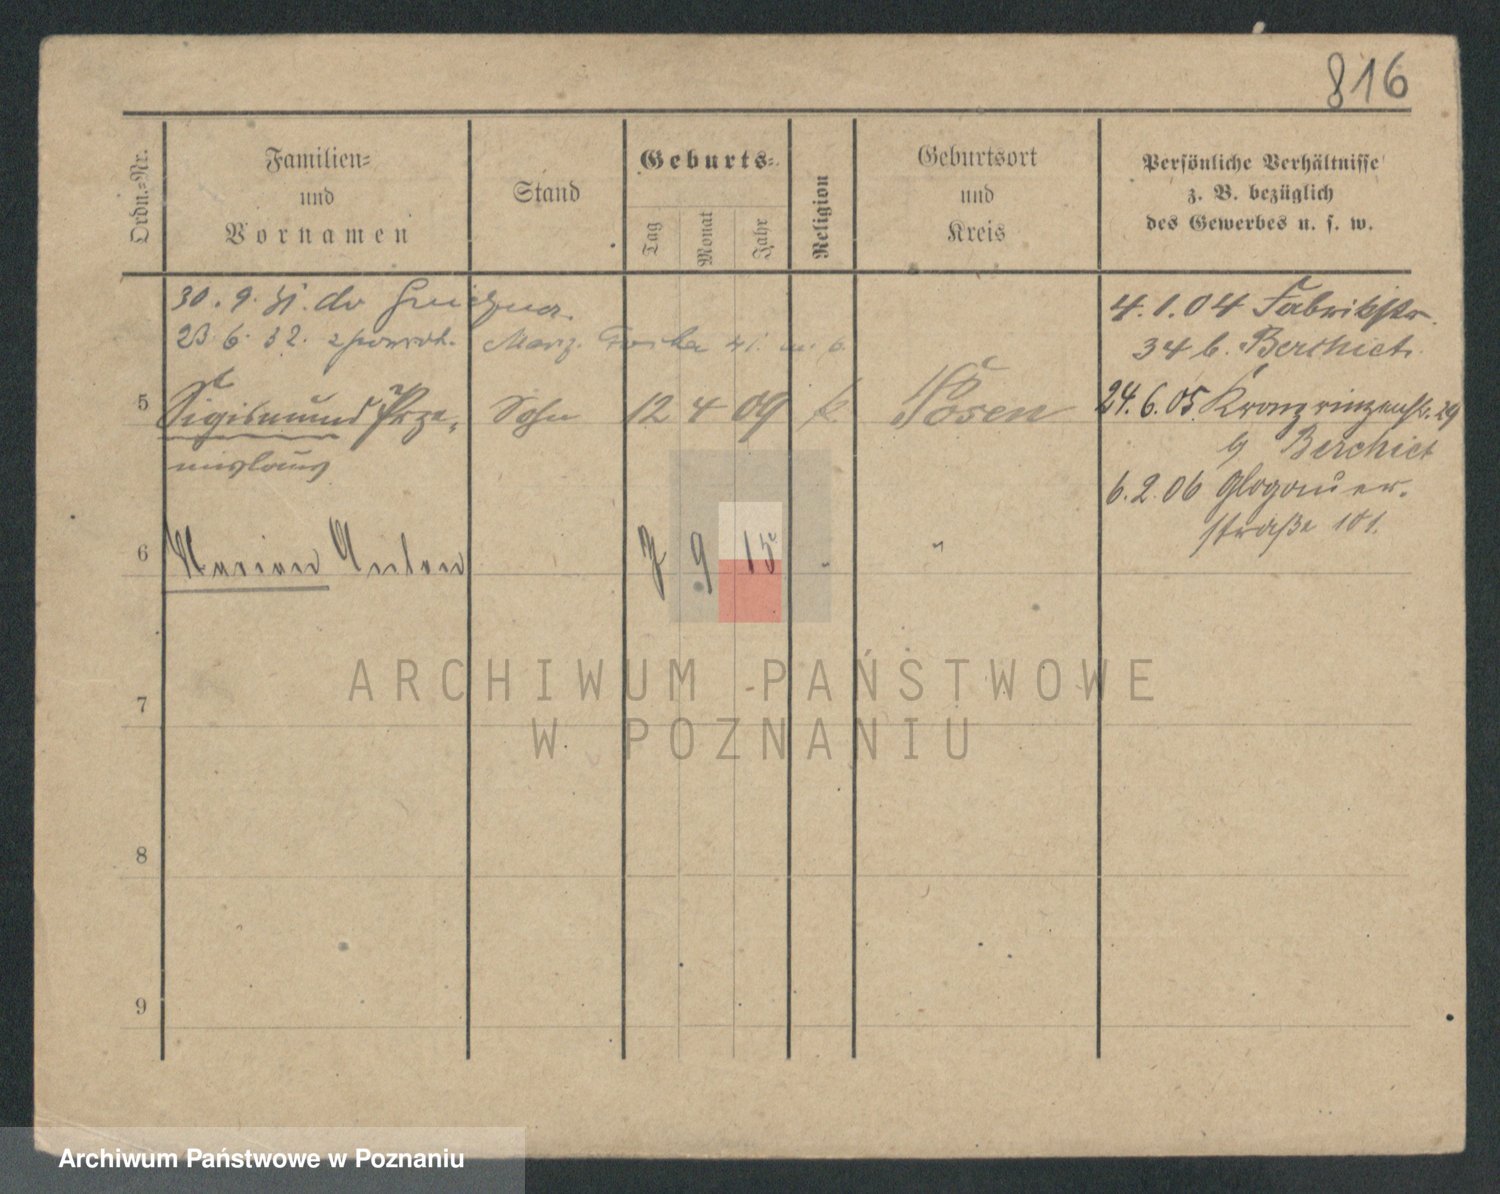 816
Ordn.-Nr.
Familien-
und
Vornamen
Stand
Geburts-
Tag
Monat
Jahr
Religion
Geburtsort
und
Kreis
Persönliche Verhältnisse
z. B. bezüglich
des Gewerbes u. s. w.
30. 9. 31. do
23. 6. 32.
4. 1. 04 Fabrikstr.
34 b. Berthiet
5 Sigismund Prze- Sohn 12 4 09 k. Posen
mislaus
24. 6. 05. Kronprinzenstr. 29
b Berchiet
6. 2. 06 Glogauer-
straße 101.
6 Marian Anton 7 9 15 " "
7
8
9
ARCHIWUM PAŃSTWOWE
W POZNANIU
Archiwum Państwowe w Poznaniu